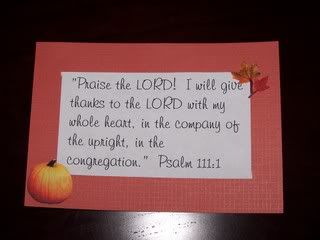 "Praise the LORD! I will give
thanks to the LORD with my
whole heart, in the company of
the upright, in the
congregation." Psalm 111:1